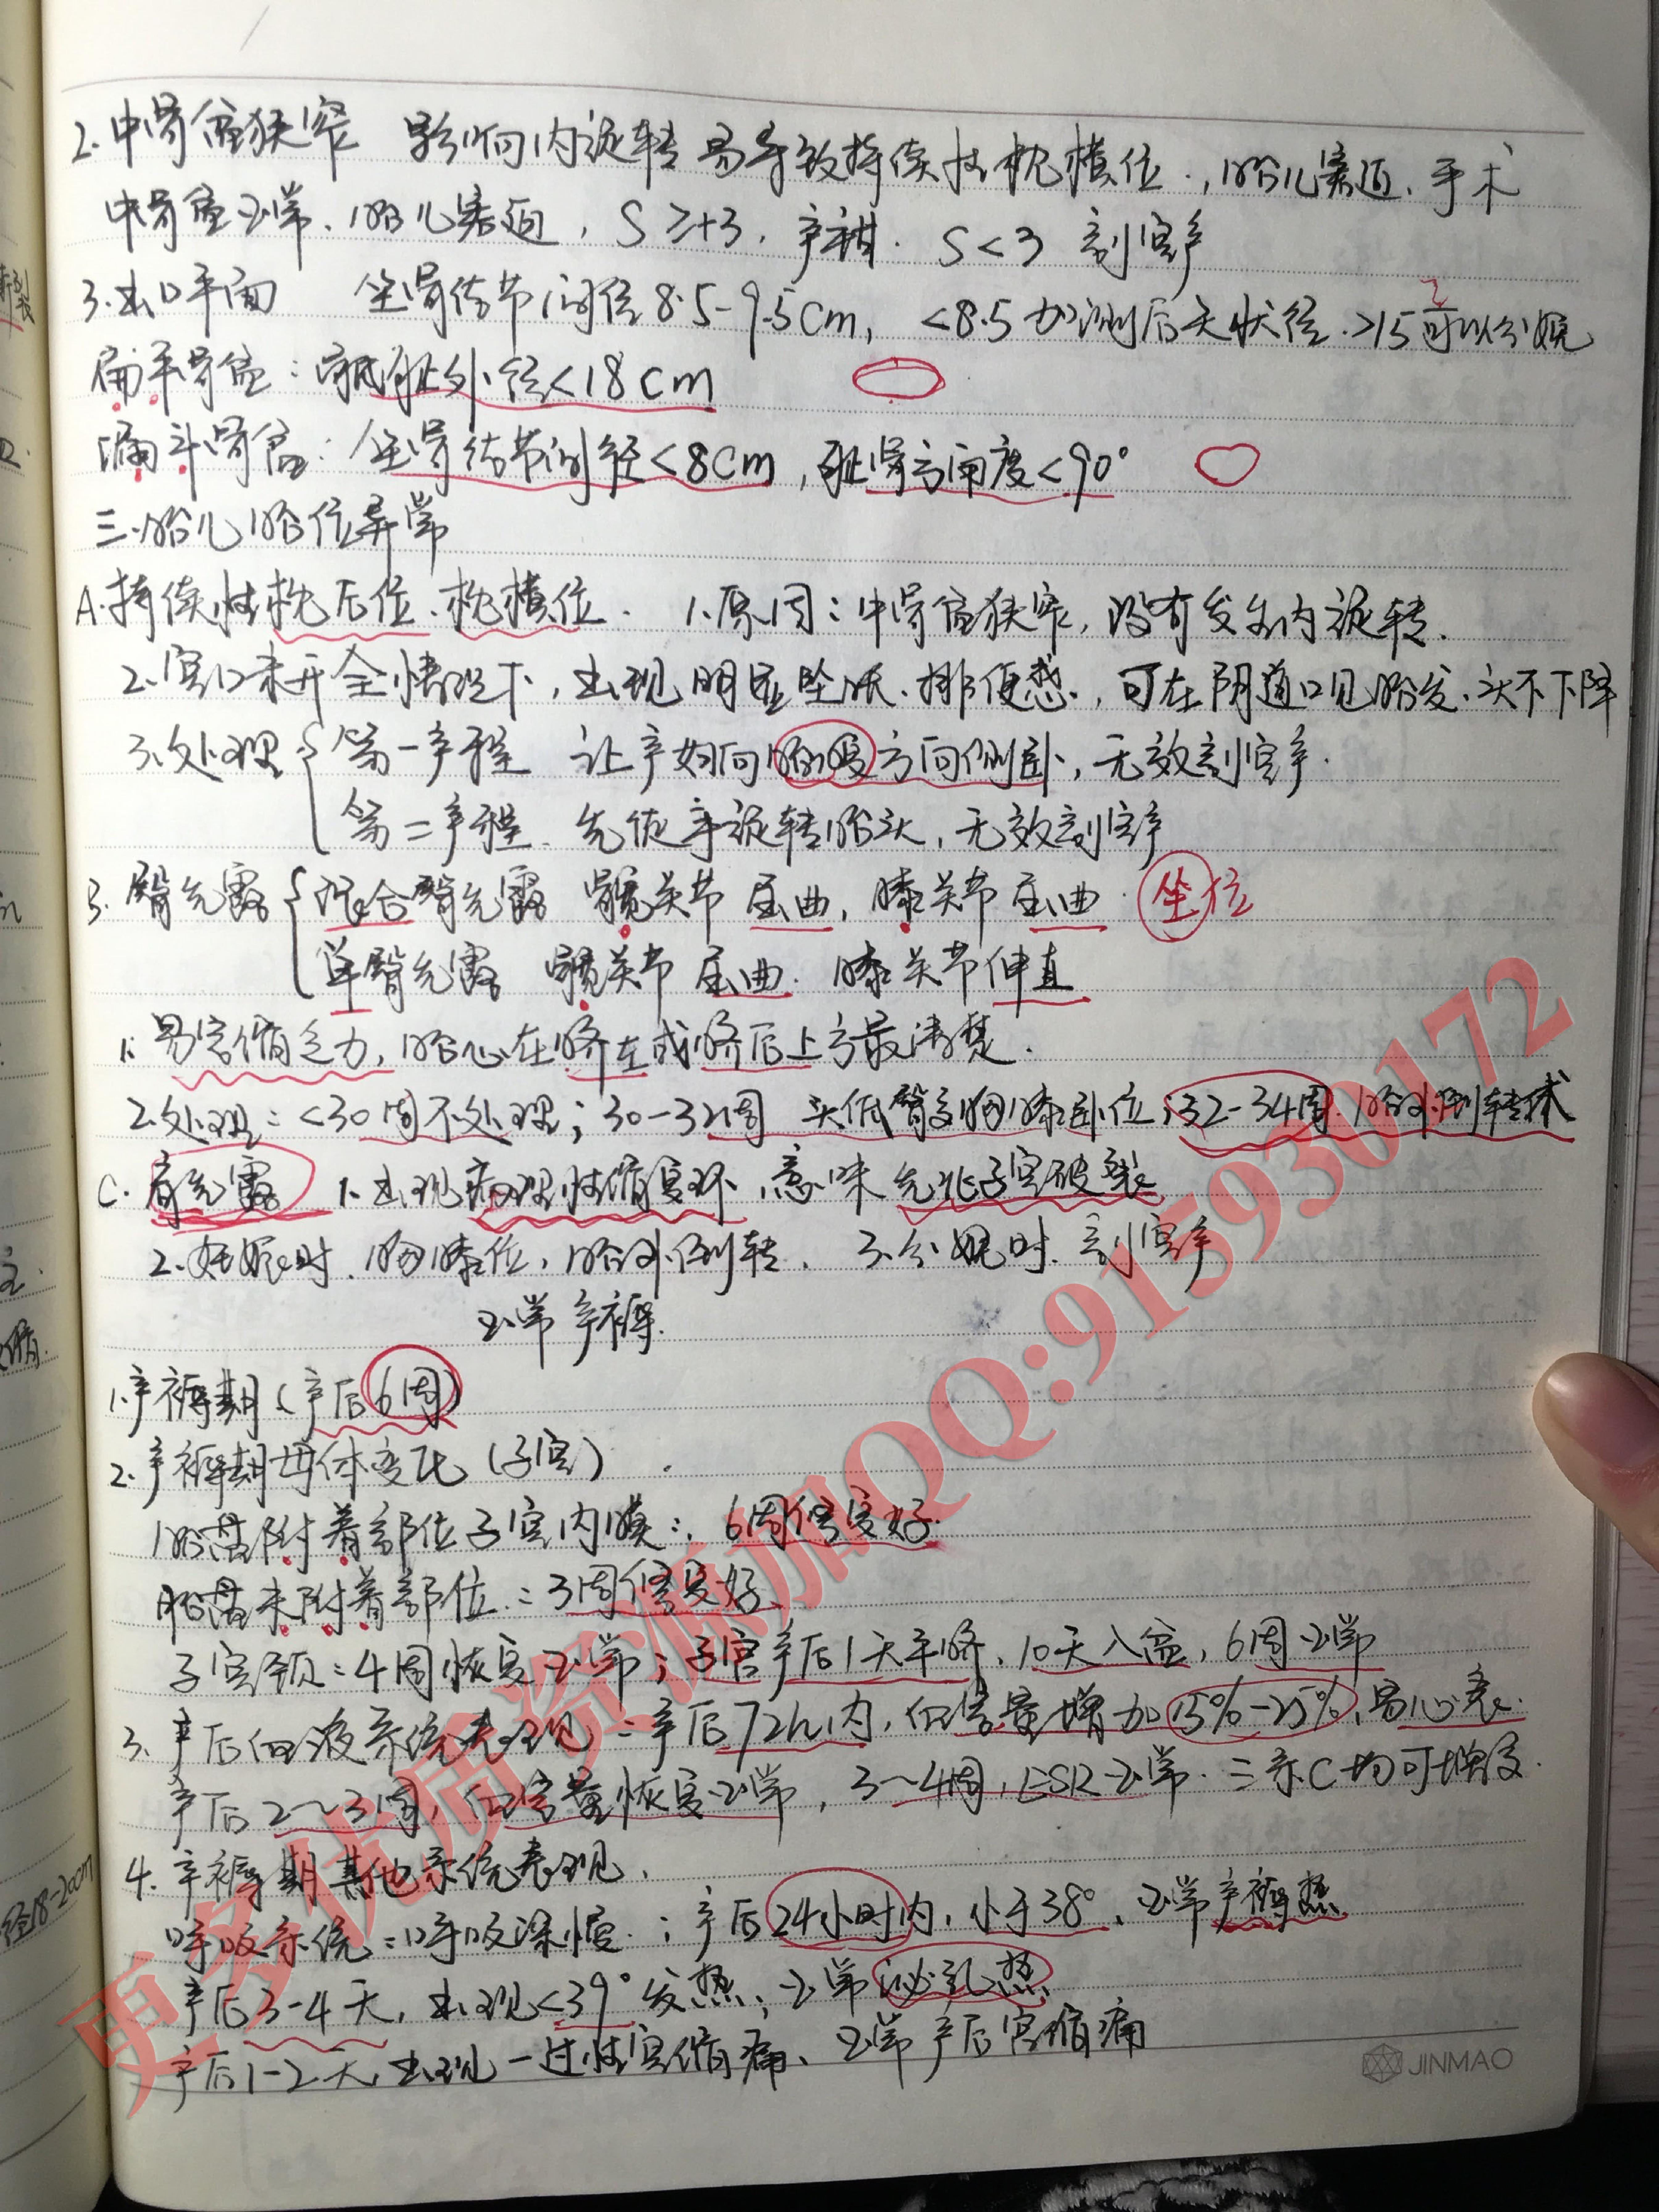 2.中骨盆狭窄 影响内旋转易导致持续性枕横位.,胎儿窘迫、手术
中骨盆正常、胎儿窘迫,S≥+3,产钳.S<3 剖宫产
3.出口平面 坐骨结节间径8.5-9.5cm,<8.5加测后矢状径.>15可以分娩
扁平骨盆:骶耻外径<18cm
漏斗骨盆:坐骨结节间径<8cm,耻骨弓角度<90°
三.胎儿胎位异常
A.持续性枕后位.枕横位. 1.原因:中骨盆狭窄,没有发生内旋转.
2.宫口未开全情况下,出现明显坠胀.排便感.,可在阴道口见胎发.头不下降
3.处理 第一产程 让产妇向胎腹方向侧卧,无效剖宫产.
第二产程.先徒手旋转胎头,无效剖宫产
B.臀先露 混合臀先露 髋关节屈曲,膝关节屈曲.坐位
单臀先露 髋关节屈曲.膝关节伸直
1.易宫缩乏力,胎心在脐左或脐后上方最清楚.
2.处理:<30周不处理;30-32周 头低臀高胸膝卧位;32-34周.胎外倒转术
C.肩先露 1.出现病理性缩复环,意味先兆子宫破裂
2.妊娠时.胸膝位,胎外倒转. 3.分娩时.剖宫产
正常产褥.
1.产褥期(产后6周)
2.产褥期母体变化(子宫).
胎盘附着部位子宫内膜:.6周修复好.
胎盘未附着部位:3周修复好.
子宫颈:4周恢复正常;子宫产后1天平脐.10天入盆,6周正常
3.产后血液系统表现:产后72h内,血容量增加15%-25%,易心衰.
产后2~3周,血容量恢复正常,3~4周,ESR正常.三系C均可增多.
4.产褥期其他系统表现.
呼吸系统:呼吸深慢.;产后24小时内,小于38°、正常产褥热
产后3-4天,出现<39°发热,正常泌乳热
产后1-2天,出现一过性宫缩痛、正常产后宫缩痛
JINMAO
经18-20cm
更多优质资源加QQ:915930172